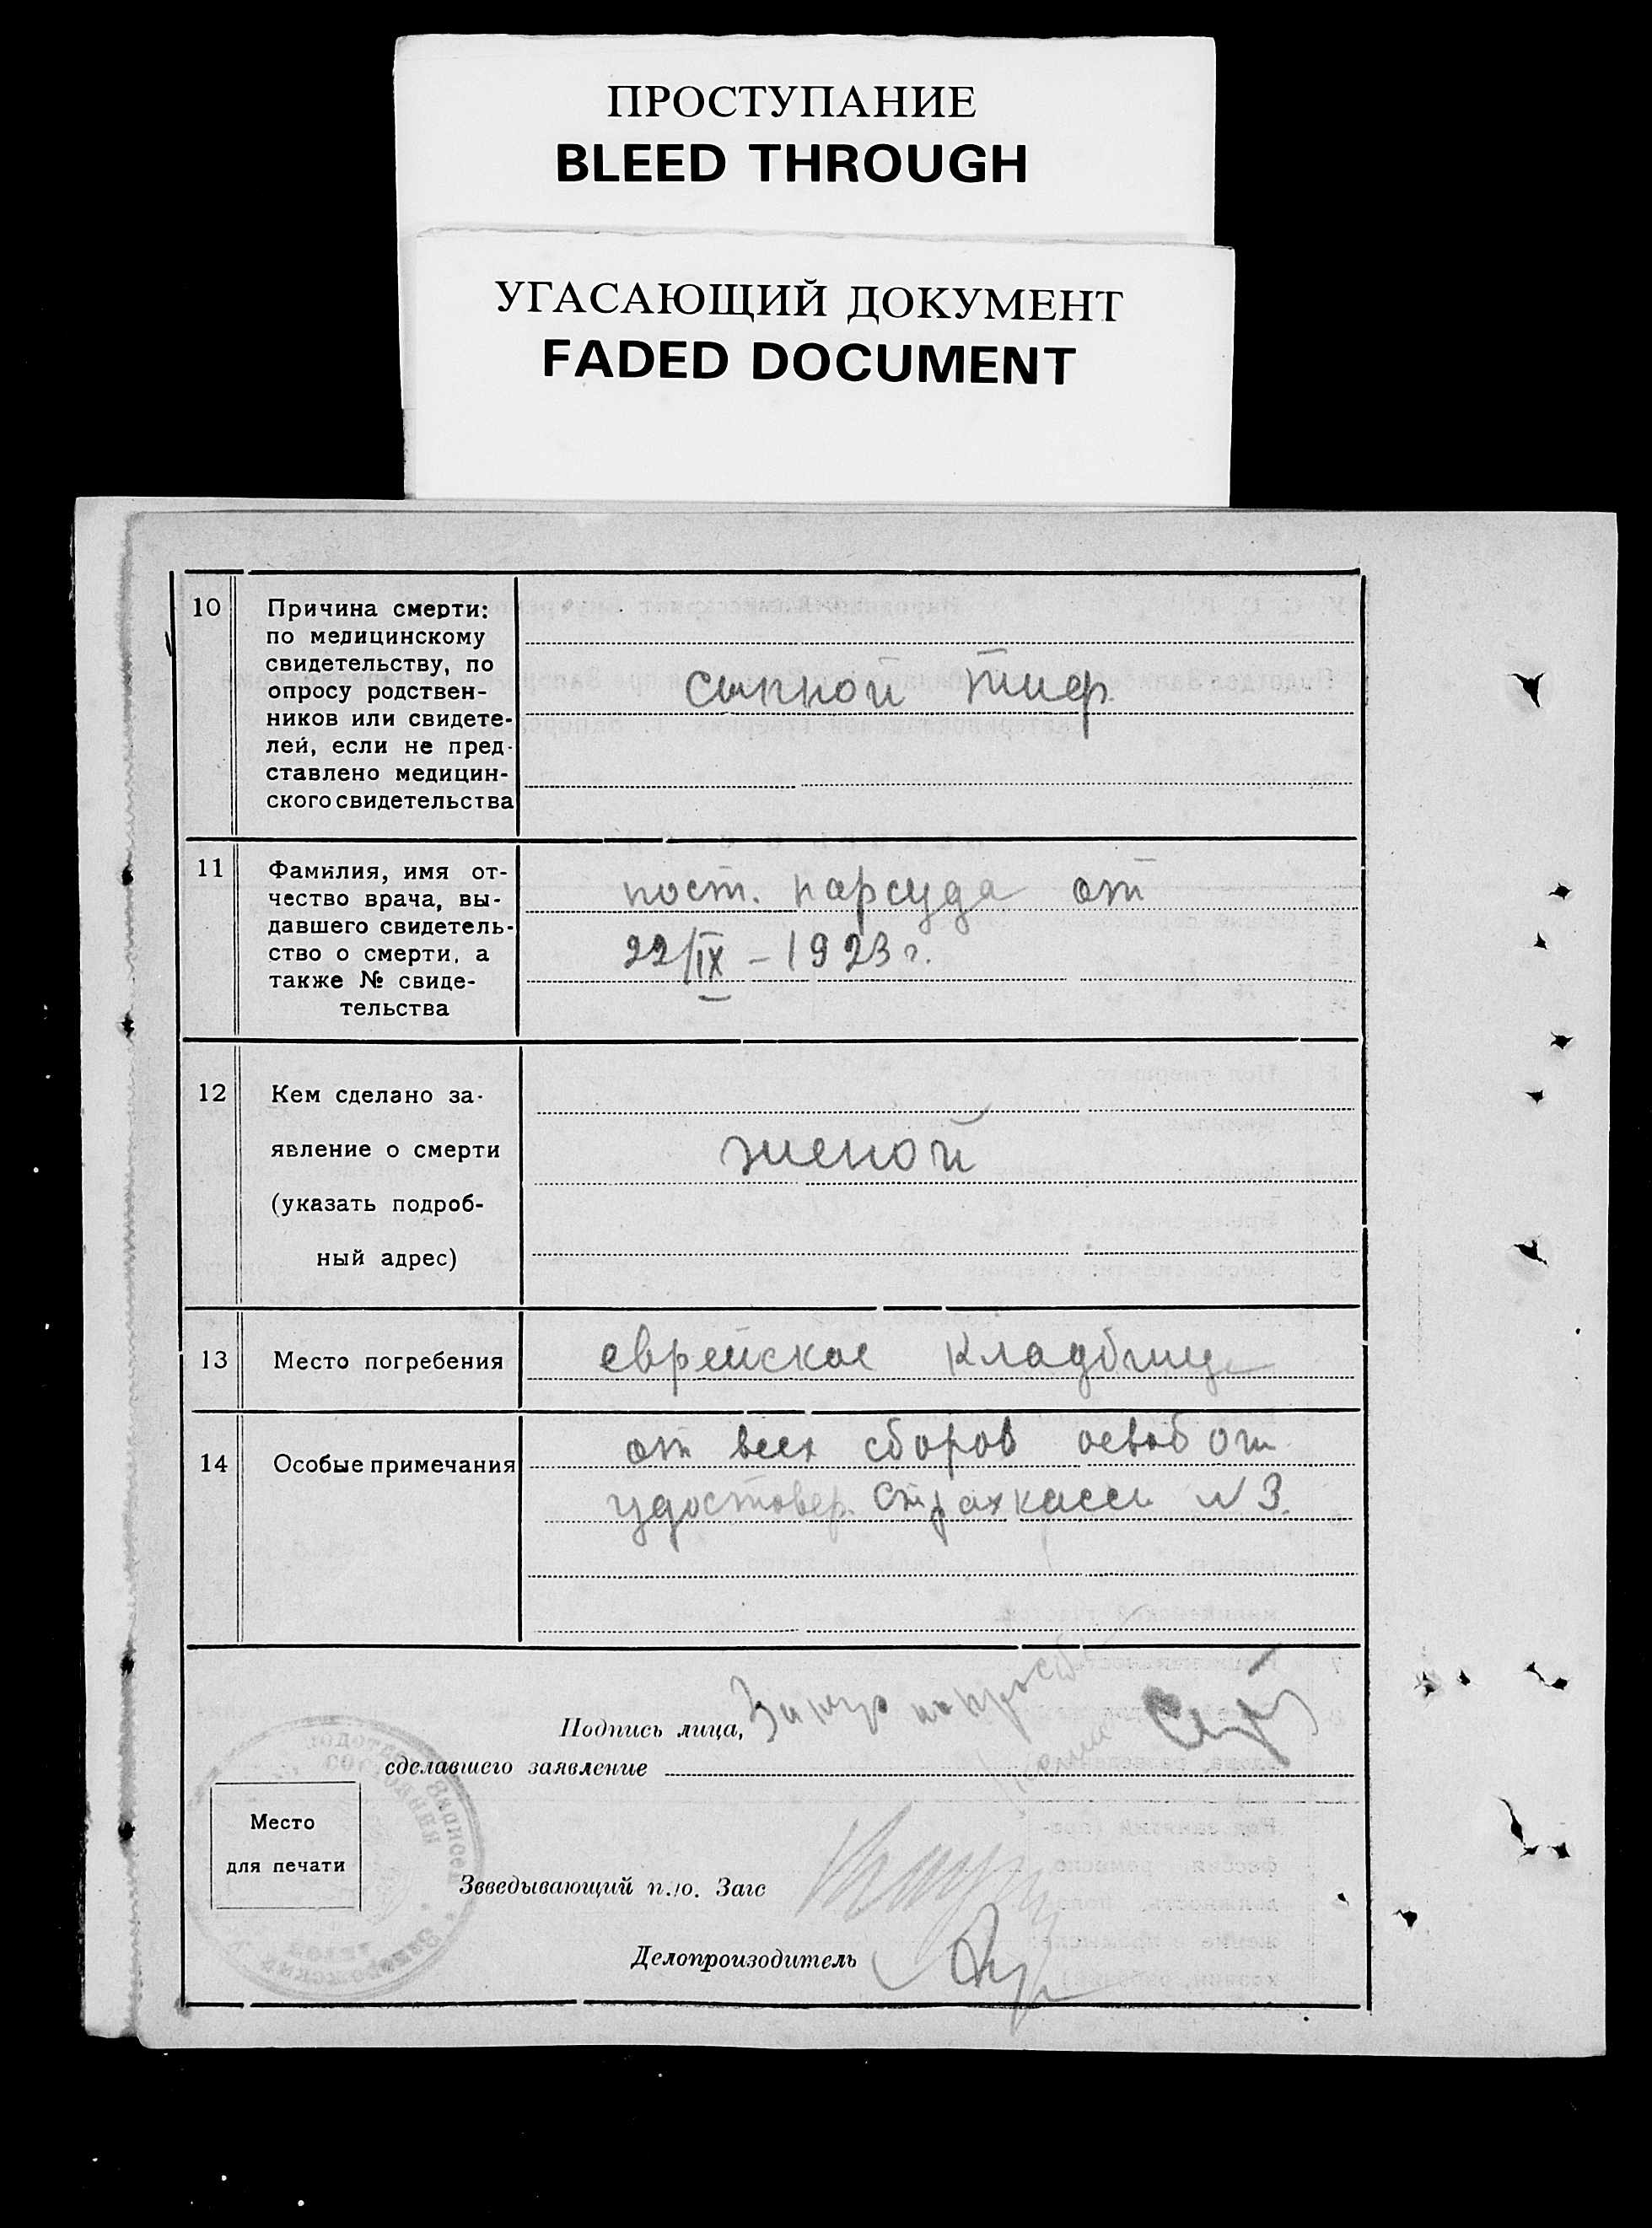 ПРОСТУПАНИЕ
BLEED THROUGH
УГАСАЮЩИЙ ДОКУМЕНТ
FADED DOCUMENT
10
Причина смерти:
по медицинскому
свидетельству, по
опросу родствен-
ников или свидете-
лей, если не пред-
ставлено медицин-
ского свидетельства
сыпной тиф
11
Фамилия, имя от-
чество врача, вы-
давшего свидетель-
ство о смерти, а
также № свиде-
тельства
пост. нарсуда от
22/IX – 1923 г.
12
Кем сделано за-
явление о смерти
(указать подроб-
ный адрес)
женой
13
Место погребения
еврейское кладбище
14
Особые примечания
от всех сборов освоб от
удостовер. страхкассы N 3.
Подпись лица,
сделавшего заявление
Место
для печати
Звведывающий п./о. Загс
Делопроизодитель